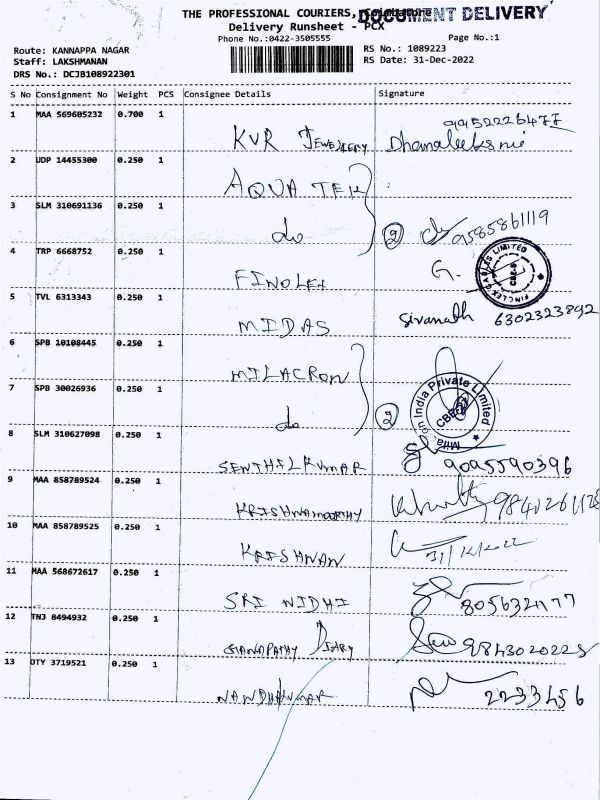 THE PROFESSIONAL COURIERS, Coimbatore
DOCUMENT DELIVERY
Delivery Runsheet - PCX
Phone No.:0422-3505555
Page No.:1
Route: KANNAPPA NAGAR
RS No.: 1089223
Staff: LAKSHMANAN
RS Date: 31-Dec-2022
DRS No.: DCJB108922301
S No Consignment No Weight PCS Consignee Details Signature
1 MAA 569605232 0.700 1 KVR Jewellery 9952226477
2 UDP 14455300 0.250 1 AQUA TEK
3 SLM 310691136 0.250 1 do 2 9585861119
4 TRP 6668752 0.250 1 FINOLEX G. FINOLEX CABLES LIMITED
5 TVL 6313343 0.250 1 MIDAS Sivanath 6302323892
6 SPB 10108445 0.250 1 MILACRON
7 SPB 30026936 0.250 1 do 2 Milacron India Private Limited CBE
8 SLM 310627098 0.250 1 SENTHILKUMAR 9095590396
9 MAA 858789524 0.250 1 KRISHNAMOORTHY
10 MAA 858789525 0.250 1 KRISHNAN 31/12/2022
11 MAA 568672617 0.250 1 SRI NIDHI
12 TNJ 8494932 0.250 1 GANAPATHY DIARY 9843020228
13 OTY 3719521 0.250 1 NANDHAKUMAR 2233456